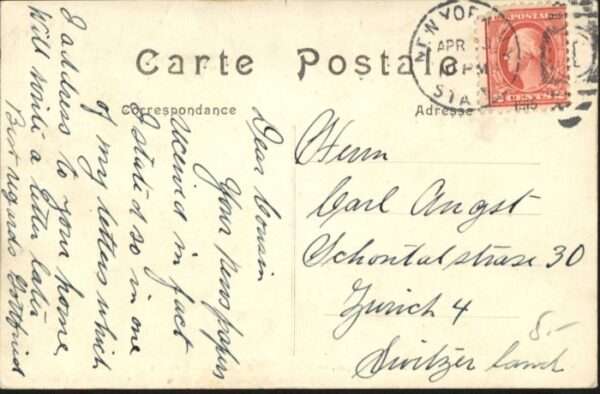 Carte Postale
Correspondance
Adresse
NEW YORK
APR
PM
STA
POSTAGE
2 CENTS 2
Dear Cousin
Your Newspapers
received in fact
I stated so in one
of my letters which
I address to your home
Will write a letter later
Best regards Gottfried
Herrn
Carl Angst
Schontalstrase 30
Zurich 4
Switzerland
8.-